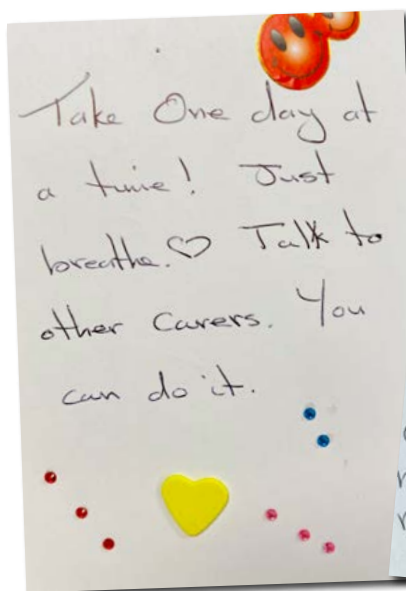 Take One day at
a time! Just
breathe.♡ Talk to
other Carers. You
can do it.